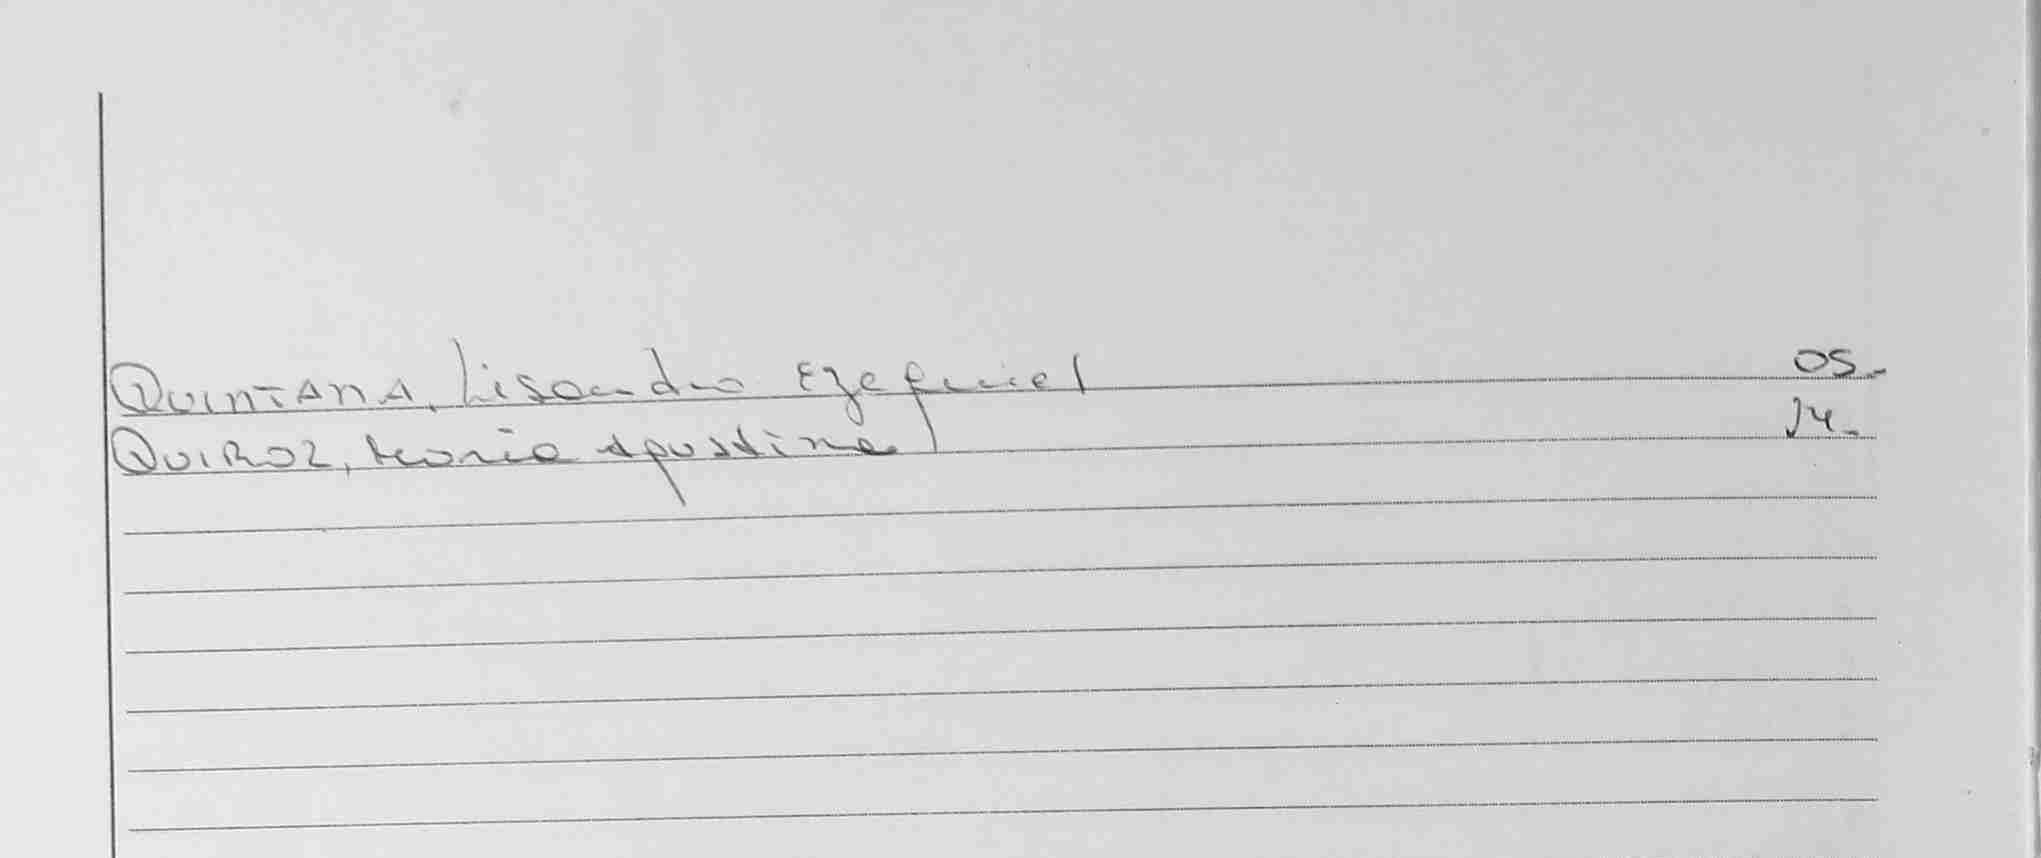 QUINTANA, Lisandro Ezequiel 05.-
QUIROZ, Maria Agustina 14.-